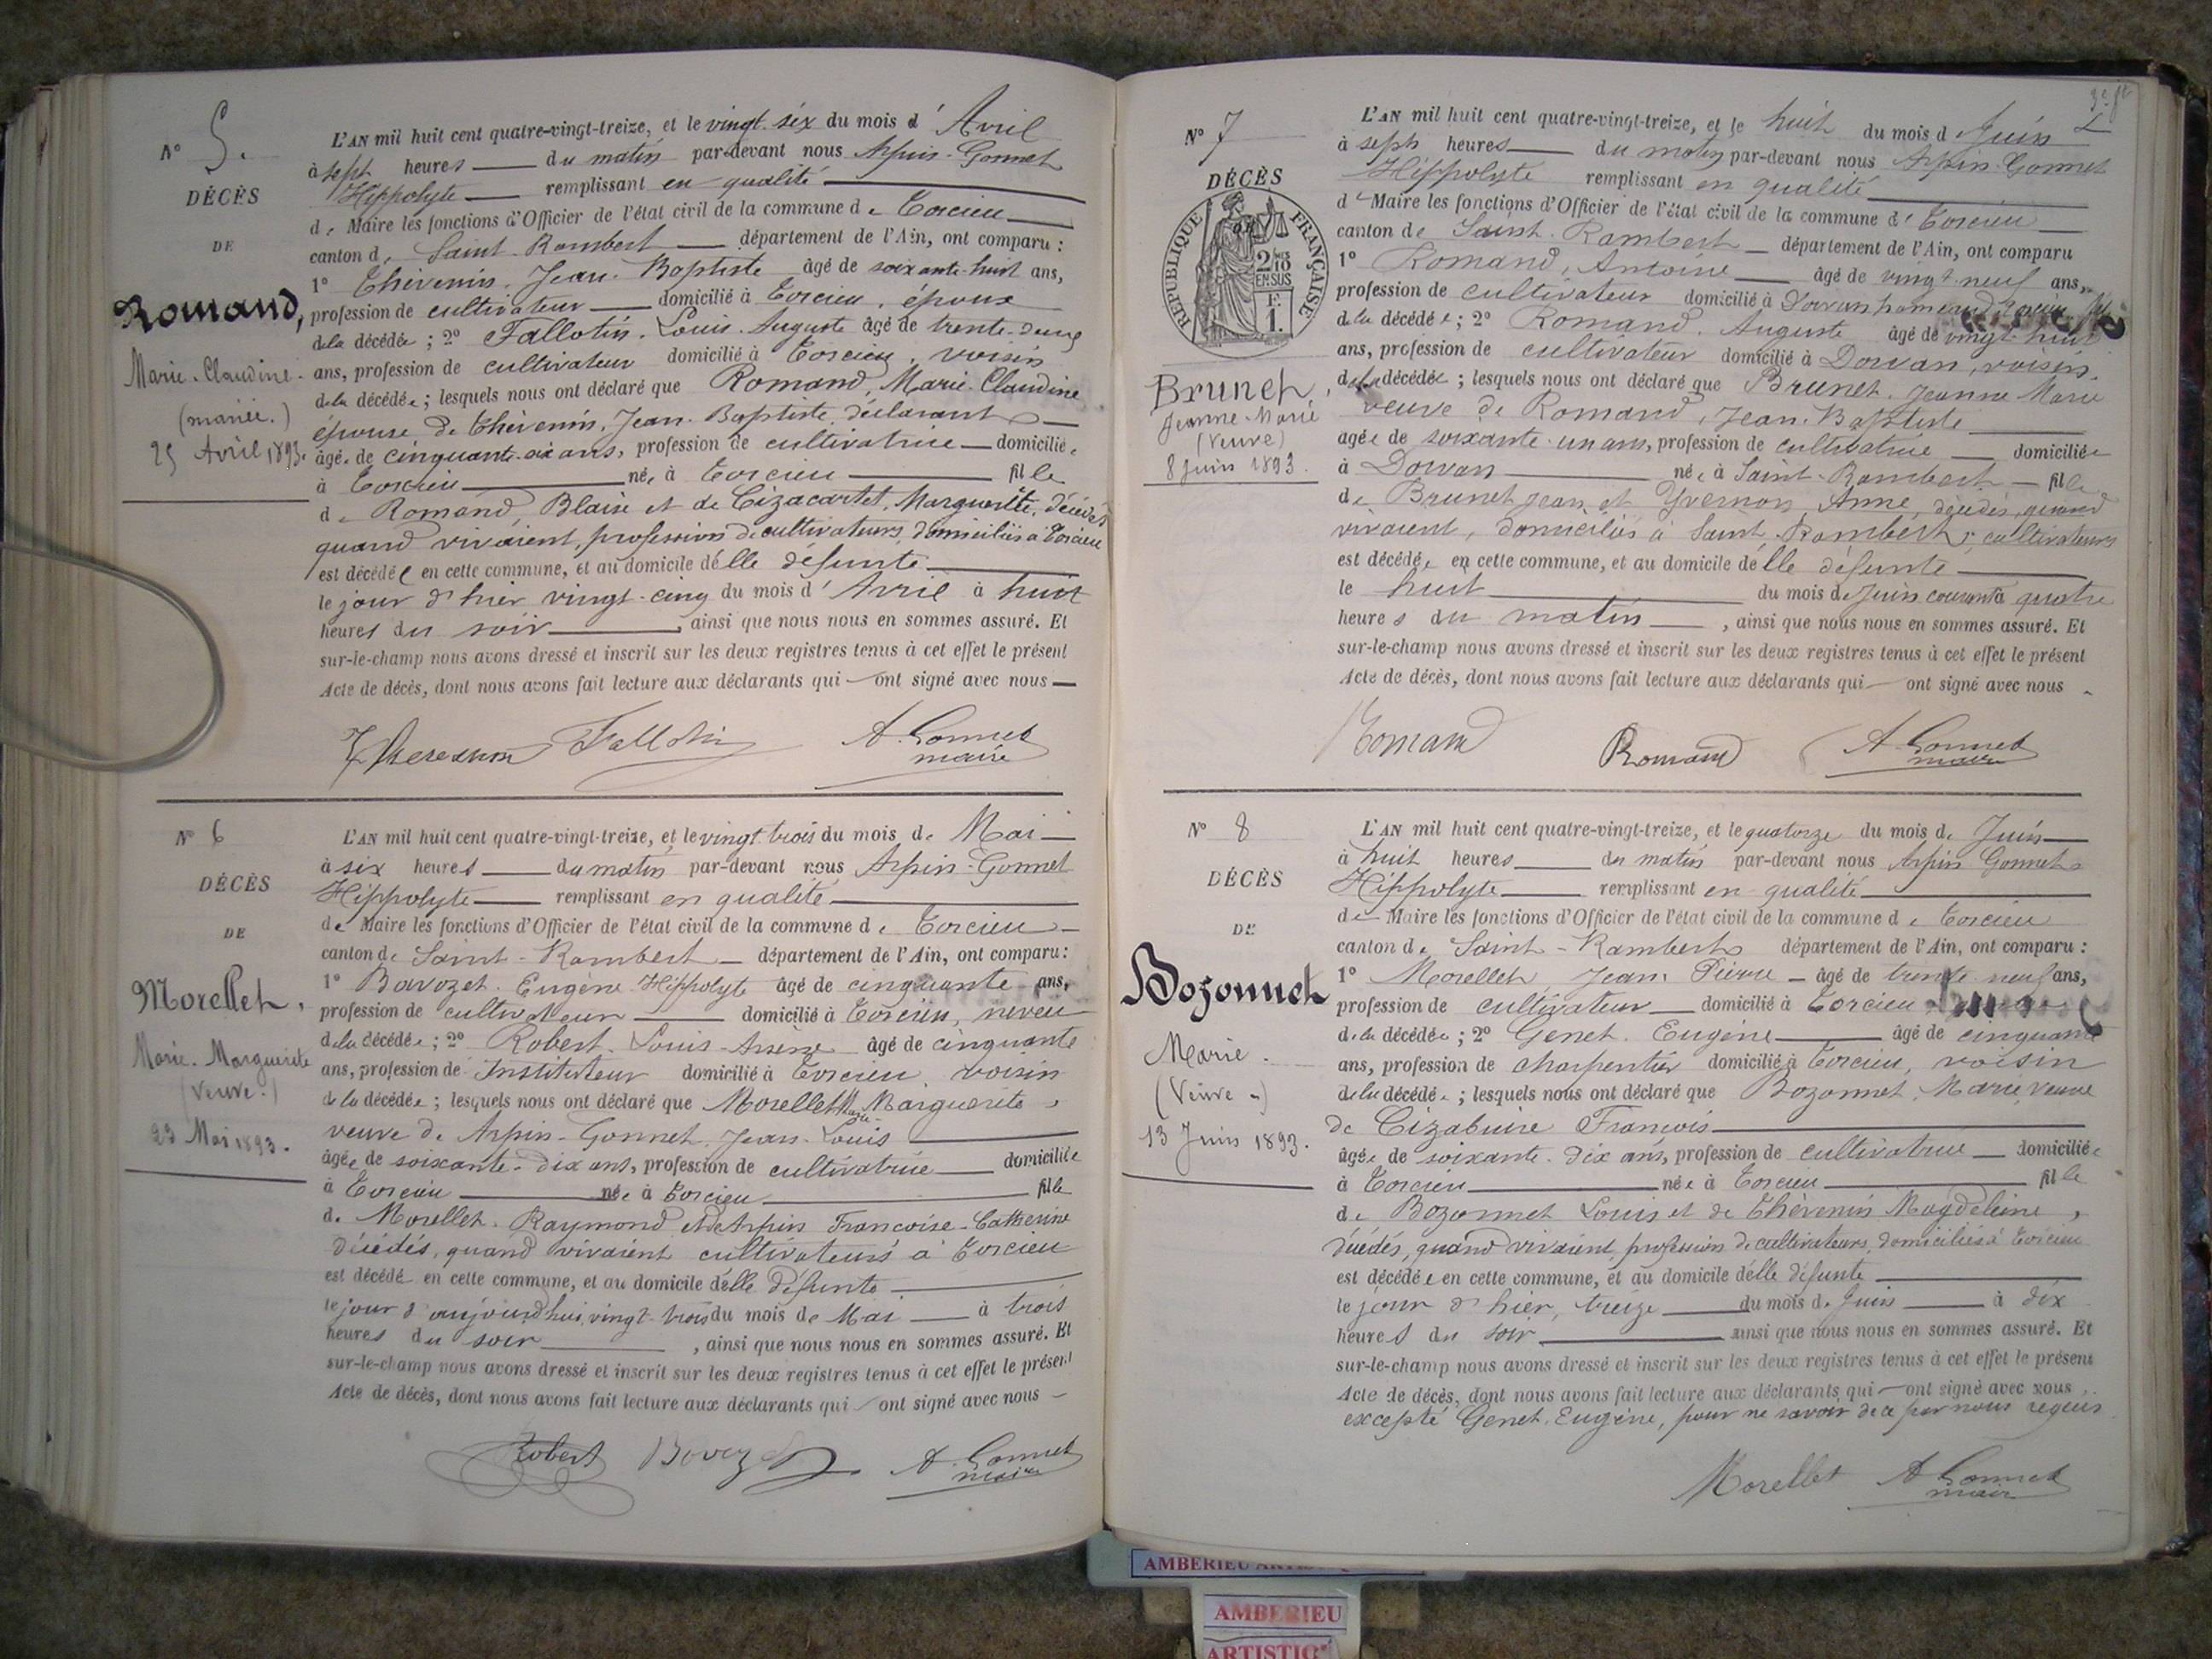 N° 5.
DÉCÈS
DE
Romand,
Marie-Claudine
(mariée.)
25 Avril 1893.
L'AN mil huit cent quatre-vingt-treize, et le vingt-six du mois d'Avril
à sept heures du matin par-devant nous Arpin-Gonnet
Hippolyte remplissant en qualité
de Maire les fonctions d'Officier de l'état civil de la commune de Torcieu
canton de Saint-Rambert département de l'Ain, ont comparu :
1° Thévenin, Jean-Baptiste âgé de soixante-huit ans,
profession de cultivateur domicilié à Torcieu, époux
de la décédée ; 2° Fallotin, Louis-Auguste âgé de trente-deux
ans, profession de cultivateur domicilié à Torcieu, voisin
de la décédée ; lesquels nous ont déclaré que Romand, Marie-Claudine
épouse de Thévenin, Jean-Baptiste, déclarant
âgée de cinquante-six ans, profession de cultivatrice domiciliée
à Torcieu née à Torcieu fille
de Romand, Blaise et de Cizacartet, Marguerite, décédés
quand vivaient, profession de cultivateurs, domiciliés à Torcieu
est décédée en cette commune, et au domicile d'elle défunte
le jour d'hier vingt-cinq du mois d'Avril à huit
heures du soir, ainsi que nous nous en sommes assuré. Et
sur-le-champ nous avons dressé et inscrit sur les deux registres tenus à cet effet le présent
Acte de décès, dont nous avons fait lecture aux déclarants qui ont signé avec nous
Fallotin A. Gonnet
maire
N° 6
DÉCÈS
DE
Morellet,
Marie-Marguerite
(Veuve.)
23 Mai 1893.
L'AN mil huit cent quatre-vingt-treize, et le vingt-trois du mois de Mai
à six heures du matin par-devant nous Arpin-Gonnet
Hippolyte remplissant en qualité
de Maire les fonctions d'Officier de l'état civil de la commune de Torcieu
canton de Saint-Rambert département de l'Ain, ont comparu :
1° Bavozet, Eugène-Hippolyte âgé de cinquante ans,
profession de cultivateur domicilié à Torcieu, neveu
de la décédée ; 2° Robert, Louis-Arsène âgé de cinquante
ans, profession de Instituteur domicilié à Torcieu, voisin
de la décédée ; lesquels nous ont déclaré que Morellet Marie Marguerite,
veuve de Arpin-Gonnet, Jean-Louis
âgée de soixante-dix ans, profession de cultivatrice domiciliée
à Torcieu née à Torcieu fille
de Morellet, Raymond et de Arpin Francoise-Catherine
décédés, quand vivaient cultivateurs à Torcieu
est décédé en cette commune, et au domicile d'elle défunte
le jour d'aujourd'hui, vingt-trois du mois de Mai à trois
heures du soir, ainsi que nous nous en sommes assuré. Et
sur-le-champ nous avons dressé et inscrit sur les deux registres tenus à cet effet le présent
Acte de décès, dont nous avons fait lecture aux déclarants qui ont signé avec nous
Robert Bavozet A. Gonnet
maire
N° 7
DÉCÈS
RÉPUBLIQUE FRANÇAISE
2/10 EN SUS
F. 1.
Brunet,
Jeanne-Marie
(Veuve)
8 Juin 1893.
L'AN mil huit cent quatre-vingt-treize, et le huit du mois de Juin
à sept heures du matin par-devant nous Arpin-Gonnet
Hippolyte remplissant en qualité
de Maire les fonctions d'Officier de l'état civil de la commune de Torcieu
canton de Saint-Rambert département de l'Ain, ont comparu
1° Romand, Antoine âgé de vingt-neuf ans,
profession de cultivateur domicilié à Dorvan hameau de Torcieu, fils
de la décédée ; 2° Romand, Auguste âgé de vingt-huit
ans, profession de cultivateur domicilié à Dorvan, voisin
de la décédée ; lesquels nous ont déclaré que Brunet, Jeanne Marie
veuve de Romand, Jean-Baptiste
agée de soixante-un ans, profession de cultivatrice domiciliée
à Dorvan née à Saint-Rambert fille
de Brunet Jean et Yvernon, Anne, décédés, quand
vivaient, domiciliés à Saint-Rambert, cultivateurs
est décédée en cette commune, et au domicile d'elle défunte
le huit du mois de Juin courant à quatre
heures du matin, ainsi que nous nous en sommes assuré. Et
sur-le-champ nous avons dressé et inscrit sur les deux registres tenus à cet effet le présent
Acte de décès, dont nous avons fait lecture aux déclarants qui ont signé avec nous
Romand Romand A. Gonnet
maire
N° 8
DÉCÈS
DE
Bozonnet
Marie.
(Veuve)
13 Juin 1893.
L'AN mil huit cent quatre-vingt-treize, et le quatorze du mois de Juin
à huit heures du matin par-devant nous Arpin-Gonnet
Hippolyte remplissant en qualité
de Maire les fonctions d'Officier de l'état civil de la commune de Torcieu
canton de Saint-Rambert département de l'Ain, ont comparu :
1° Morellet, Jean Pierre âgé de trente-neuf ans,
profession de cultivateur domicilié à Torcieu
de la décédée ; 2° Genet, Eugène âgé de cinquante
ans, profession de charpentier domicilié à Torcieu, voisin
de la décédée ; lesquels nous ont déclaré que Bozonnet, Marie, veuve
de Cizabuire François
âgée de soixante-dix ans, profession de cultivatrice domiciliée
à Torcieu née à Torcieu fille
de Bozonnet Louis et de Thévenin Magdeleine,
décédés, quand vivaient, profession de cultivateurs, domiciliés à Torcieu
est décédée en cette commune, et au domicile d'elle défunte
le jour d'hier, treize du mois de Juin à dix
heures du soir ainsi que nous nous en sommes assuré. Et
sur-le-champ nous avons dressé et inscrit sur les deux registres tenus à cet effet le présent
Acte de décès, dont nous avons fait lecture aux déclarants qui ont signé avec nous
excepté Genet, Eugène, pour ne savoir de ce par nous requis
Morellet A. Gonnet
maire
AMBERIEU
AMBERIEU
ARTISTIQ